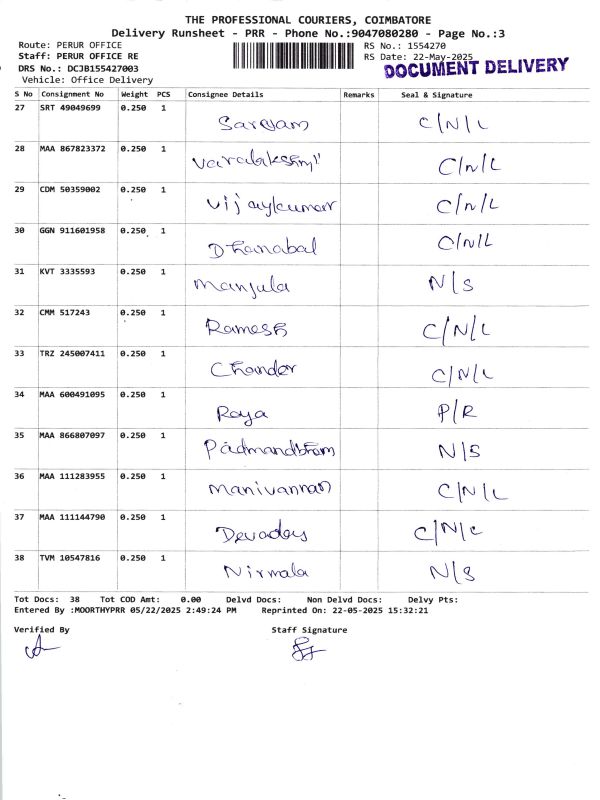 THE PROFESSIONAL COURIERS, COIMBATORE
Delivery Runsheet - PRR - Phone No.:9047080280 - Page No.:3
Route: PERUR OFFICE RS No.: 1554270
Staff: PERUR OFFICE RE RS Date: 22-May-2025
DRS No.: DCJB155427003 DOCUMENT DELIVERY
Vehicle: Office Delivery
S No Consignment No Weight PCS Consignee Details Remarks Seal & Signature
27 SRT 49049699 0.250 1
C/N/L
28 MAA 867823372 0.250 1
Varalakshmi C/N/L
29 CDM 50359002 0.250 1
Vijaykumar C/N/L
30 GGN 911601958 0.250 1
Dhanabal C/N/L
31 KVT 3335593 0.250 1
Manjula N/S
32 CMM 517243 0.250 1
Ramesh C/N/L
33 TRZ 245007411 0.250 1
Chander C/N/L
34 MAA 600491095 0.250 1
Raja P/R
35 MAA 866807097 0.250 1
N/S
36 MAA 111283955 0.250 1
Manivannan C/N/L
37 MAA 111144790 0.250 1
Devadas C/N/L
38 TVM 10547816 0.250 1
Nirmala N/S
Tot Docs: 38 Tot COD Amt: 0.00 Delvd Docs: Non Delvd Docs: Delvy Pts:
Entered By :MOORTHYPRR 05/22/2025 2:49:24 PM Reprinted On: 22-05-2025 15:32:21
Verified By Staff Signature